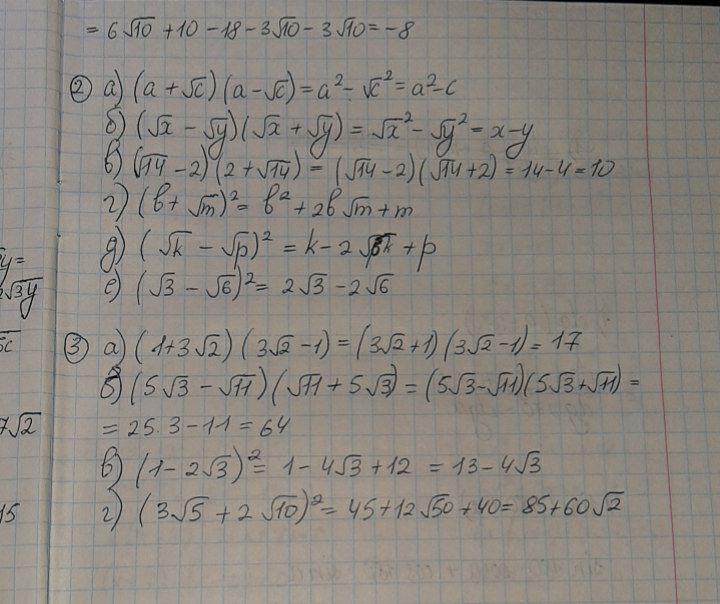 = 6√10 + 10 - 18 - 3√10 - 3√10 = -8
② а) (a + √c)(a - √c) = a² - √c² = a² - c
б) (√x - √y)(√x + √y) = √x² - √y² = x - y
в) (√14 - 2)(2 + √14) = (√14 - 2)(√14 + 2) = 14 - 4 = 10
г) (b + √m)² = b² + 2b√m + m
д) (√k - √p)² = k - 2√pk + p
е) (√3 - √6)² = 2√3 - 2√6
③ а) (1 + 3√2)(3√2 - 1) = (3√2 + 1)(3√2 - 1) = 17
б) (5√3 - √11)(√11 + 5√3) = (5√3 - √11)(5√3 + √11) =
= 25·3 - 11 = 64
в) (1 - 2√3)² = 1 - 4√3 + 12 = 13 - 4√3
г) (3√5 + 2√10)² = 45 + 12√50 + 40 = 85 + 60√2
y =
√3y
7√2
15